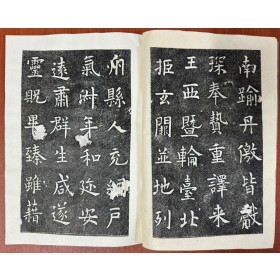 南踰丹徼皆獻
琛奉贄重譯來
王西暨輪臺北
拒玄闕並地列
州縣人充編戶
氣淑年和迩安
遠肅群生咸遂
靈貺畢臻雖藉